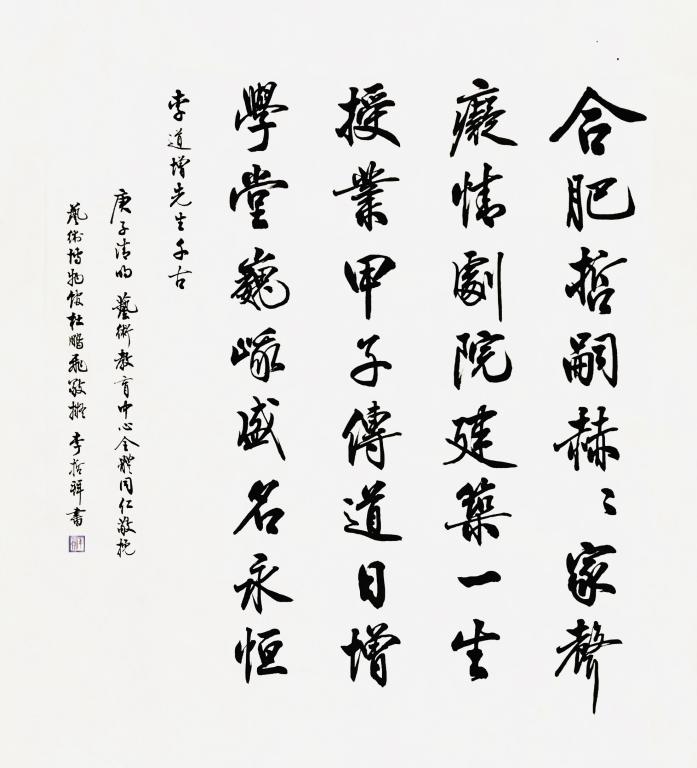 合肥哲嗣赫〻家聲
癡情劇院建築一生
授業甲子傳道日增
學堂巍峨盛名永恒
李道增先生千古
庚子清明 藝術教育中心全體同仁敬挽
藝術博物館杜鵬飛敬撰 李哲
書